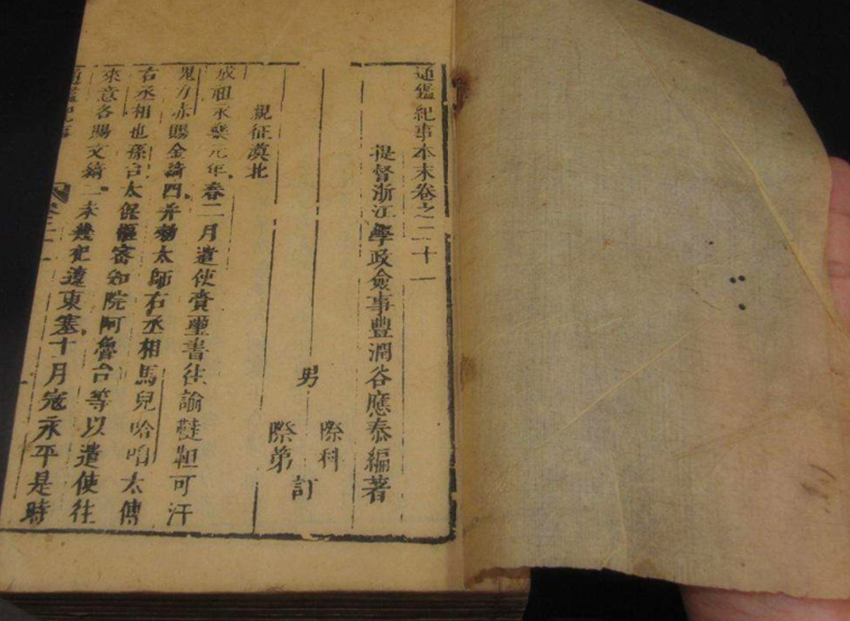 通鑑紀事本末卷之二十一
提督浙江學政僉事豐潤谷應泰編著
際科
男
訂
際第
親征漠北
成祖永樂元年春二月遣使賫璽書往諭韃靼可汗
鬼力赤賜金綺四并勑太師右丞相馬兒哈咱太傅
右丞相也孫台太保樞密知院阿魯台等以遣使往
來意各賜文綺二未幾犯遼東塞十月寇永平是時